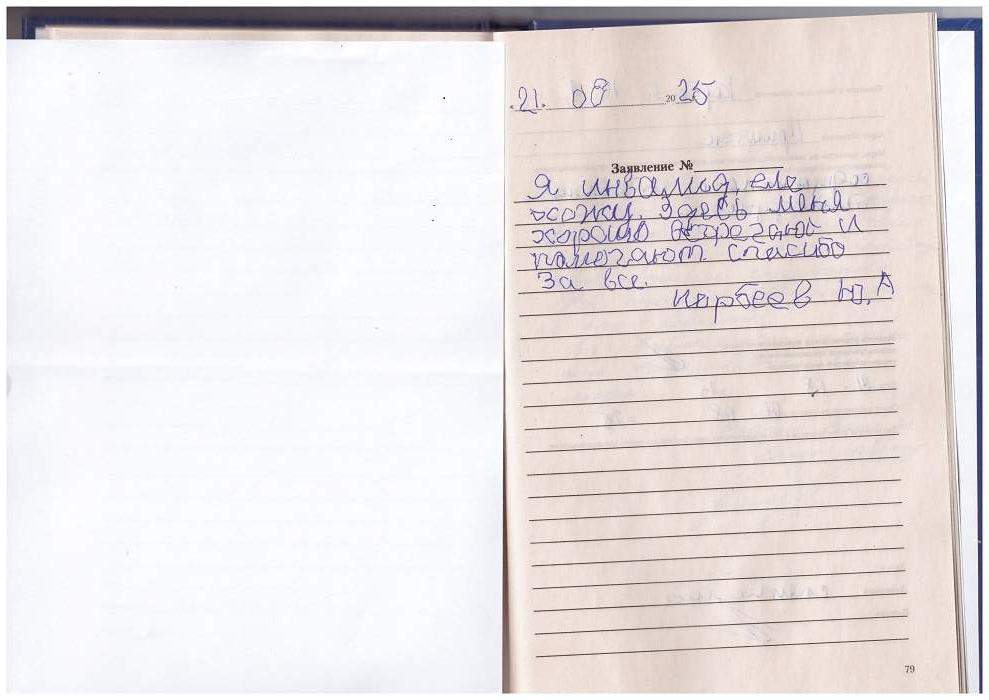 21. 08 2025
Заявление №
Я инвалид еле
хожу. Здесь меня
хорошо встречают и
помогают спасибо
За все.
Ю, А
79